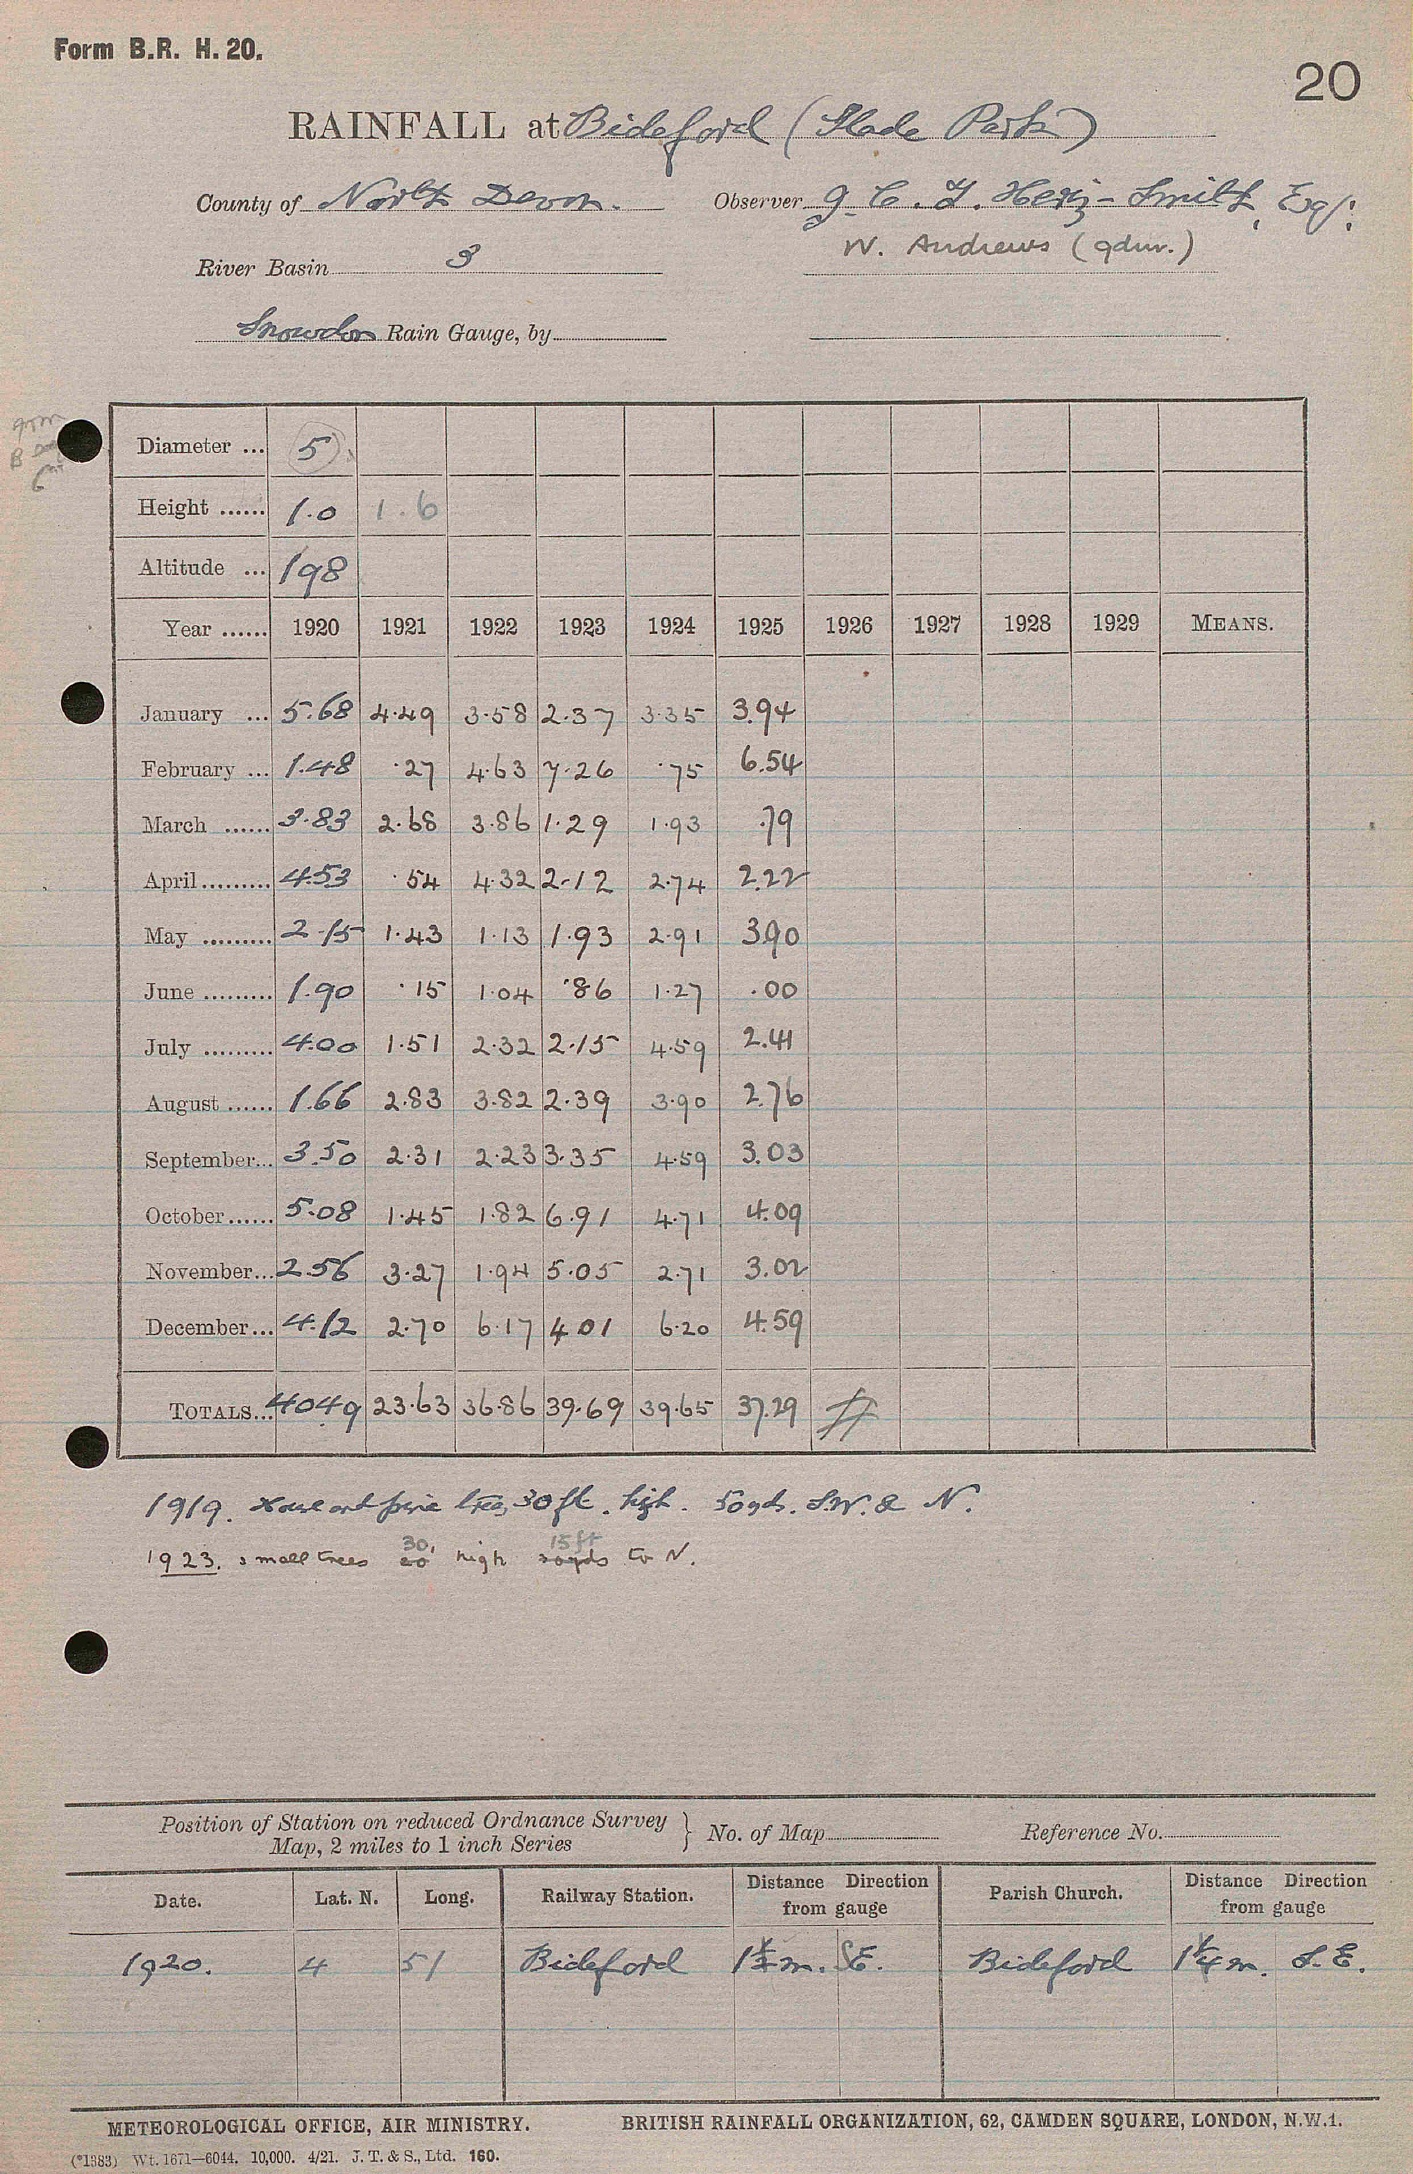 Form B.R. H. 20.
20
RAINFALL at Bideford (Slade Park)
County of North Devon. Observer J. C. F. Hertz-Smith, Esq.
River Basin 3 W. Andrews (gdnr.)
Snowdon Rain Gauge, by
Diameter ... 5
Height ...... 1.0 1.6
Altitude ... 198
Year ...... 1920 1921 1922 1923 1924 1925 1926 1927 1928 1929 MEANS.
January ... 5.68 4.49 3.58 2.37 3.35 3.94
February ... 1.48 .27 4.63 7.26 .75 6.54
March ...... 3.83 2.68 3.86 1.29 1.93 .79
April ......... 4.53 .54 4.32 2.12 2.74 2.22
May ......... 2.15 1.43 1.13 1.93 2.91 3.90
June ......... 1.90 .15 1.04 .86 1.27 .00
July ......... 4.00 1.51 2.32 2.15 4.59 2.41
August ...... 1.66 2.83 3.82 2.39 3.90 2.76
September... 3.50 2.31 2.23 3.35 4.59 3.03
October...... 5.08 1.45 1.82 6.91 4.71 4.09
November... 2.56 3.27 1.94 5.05 2.71 3.02
December... 4.12 2.70 6.17 4.01 6.20 4.59
TOTALS... 40.49 23.63 36.86 39.69 39.65 37.29
1919. House and pine trees 30 ft. high. 50 yds. S.W. & N.
1923. small trees 30' high 15 ft to N.
Position of Station on reduced Ordnance Survey
Map, 2 miles to 1 inch Series } No. of Map Reference No.
Date. Lat. N. Long. Railway Station. Distance Direction from gauge Parish Church. Distance Direction from gauge
1920. 4 51 Bideford m. SE. Bideford 1¼ m. S.E.
METEOROLOGICAL OFFICE, AIR MINISTRY. BRITISH RAINFALL ORGANIZATION, 62, CAMDEN SQUARE, LONDON, N.W.1.
(*1383) Wt. 1671—6044. 10,000. 4/21. J. T. & S., Ltd. 160.